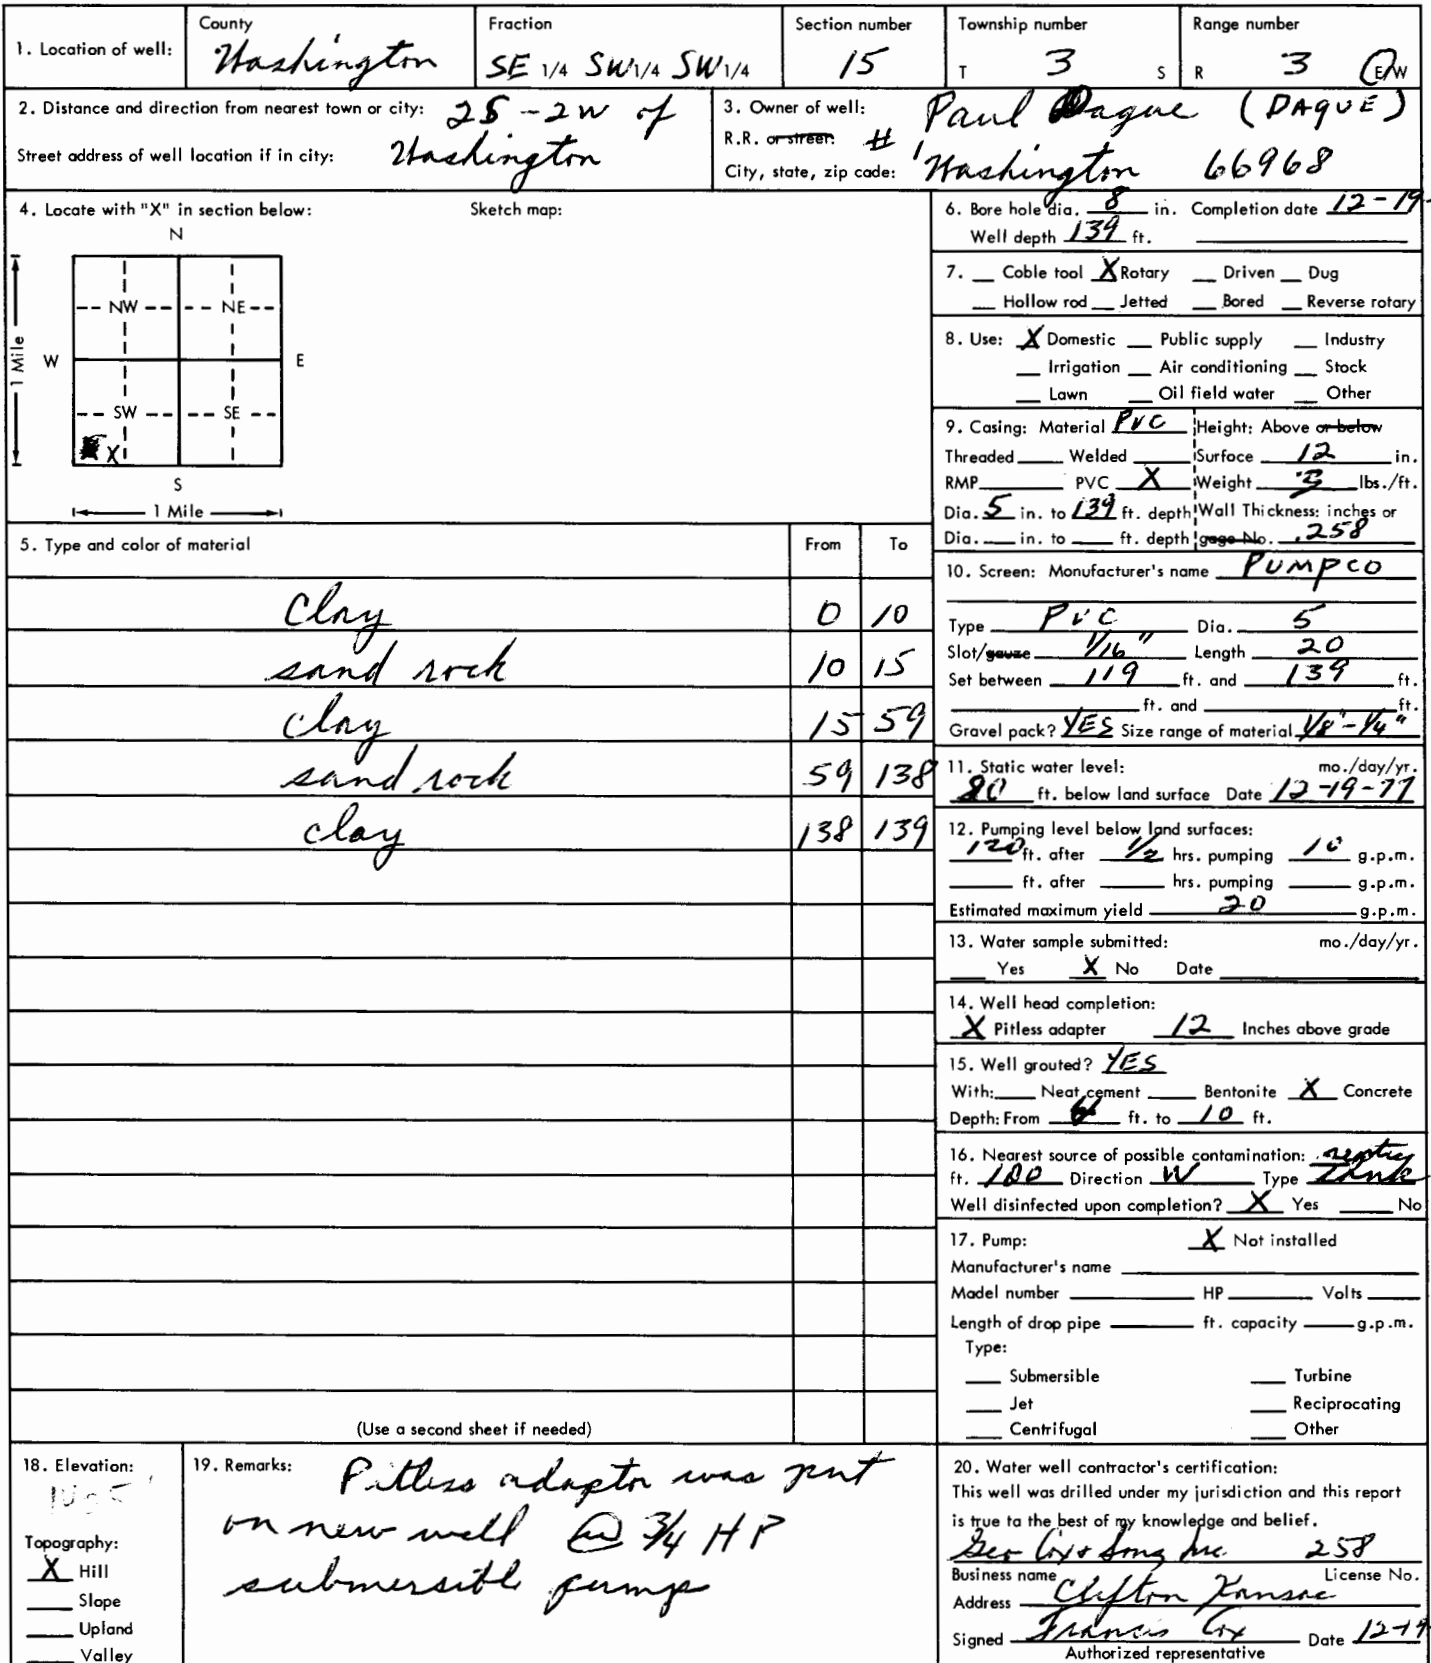 1. Location of well:
County
Washington
Fraction
SE 1/4 SW 1/4 SW 1/4
Section number
15
Township number
T 3 S
Range number
R 3 E/W
2. Distance and direction from nearest town or city: 2S - 2W of
Street address of well location if in city: Washington
3. Owner of well: Paul Dague (DAGUE)
R.R. or street: # 1
City, state, zip code: Washington 66968
4. Locate with "X" in section below:
Sketch map:
N
NW NE
W E
1 Mile
SW SE
X
S
1 Mile
5. Type and color of material From To
Clay 0 10
sand rock 10 15
clay 15 59
sand rock 59 138
clay 138 139
(Use a second sheet if needed)
6. Bore hole dia. 8 in. Completion date 12-19-
Well depth 139 ft.
7. Cable tool X Rotary Driven Dug
Hollow rod Jetted Bored Reverse rotary
8. Use: X Domestic Public supply Industry
Irrigation Air conditioning Stock
Lawn Oil field water Other
9. Casing: Material PVC Height: Above or below
Threaded Welded Surface 12 in.
RMP PVC X Weight 3 lbs./ft.
Dia. 5 in. to 139 ft. depth Wall Thickness: inches or
Dia. in. to ft. depth gage No. .258
10. Screen: Manufacturer's name PUMPCO
Type PVC Dia. 5
Slot/gauze 1/16" Length 20
Set between 119 ft. and 139 ft.
ft. and ft.
Gravel pack? YES Size range of material 1/8"-1/4"
11. Static water level: mo./day/yr.
80 ft. below land surface Date 12-19-77
12. Pumping level below land surfaces:
120 ft. after 1/2 hrs. pumping 10 g.p.m.
ft. after hrs. pumping g.p.m.
Estimated maximum yield 20 g.p.m.
13. Water sample submitted: mo./day/yr.
Yes X No Date
14. Well head completion:
X Pitless adapter 12 Inches above grade
15. Well grouted? YES
With: Neat cement Bentonite X Concrete
Depth: From ft. to 10 ft.
16. Nearest source of possible contamination: septic
ft. 100 Direction W Type tank
Well disinfected upon completion? X Yes No
17. Pump: X Not installed
Manufacturer's name
Model number HP Volts
Length of drop pipe ft. capacity g.p.m.
Type:
Submersible Turbine
Jet Reciprocating
Centrifugal Other
18. Elevation:
Topography:
X Hill
Slope
Upland
Valley
19. Remarks: Pitless adaptor was put
on new well @ 3/4 HP
submersible pump
20. Water well contractor's certification:
This well was drilled under my jurisdiction and this report
is true to the best of my knowledge and belief.
Geo Cox & Sons Inc. 258
Business name License No.
Address Clifton Kansas
Signed Francis Cox Date 12-19
Authorized representative